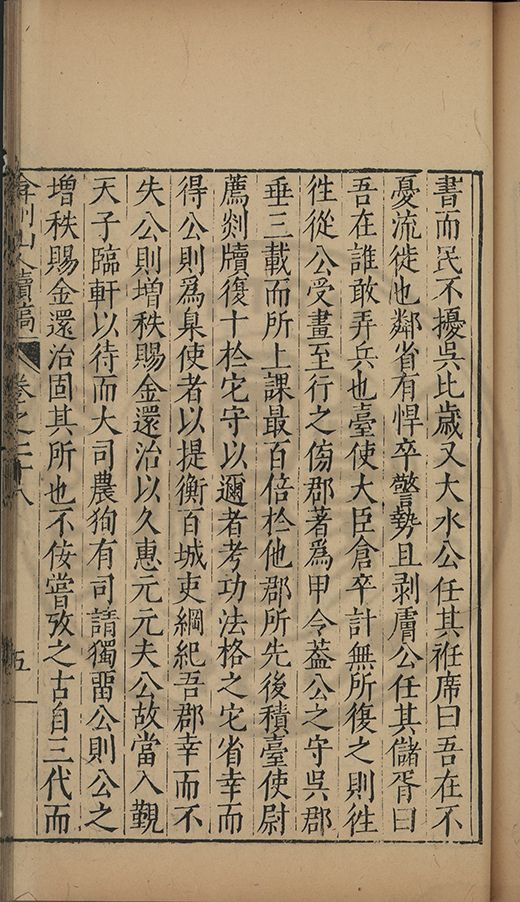 書而民不擾吳比歲又大水公任其袵席曰吾在不
憂流徙也鄰省有悍卒警勢且剥膚公任其儲胥曰
吾在誰敢弄兵也臺使大臣倉卒計無所復之則徃
徃從公受畫至行之傍郡著爲甲令葢公之守吳郡
垂三載而所上課最百倍於他郡所先後積臺使尉
薦剡牘復十於它守以邇者考功法格之它省幸而
得公則爲臬使者以提衡百城吏綱紀吾郡幸而不
失公則增秩賜金還治以久惠元元夫公故當入觀
天子臨軒以待而大司農狥有司請獨畱公則公之
增秩賜金還治固其所也不佞嘗攷之古自三代而
弇州山人續稿 卷之二十八 五